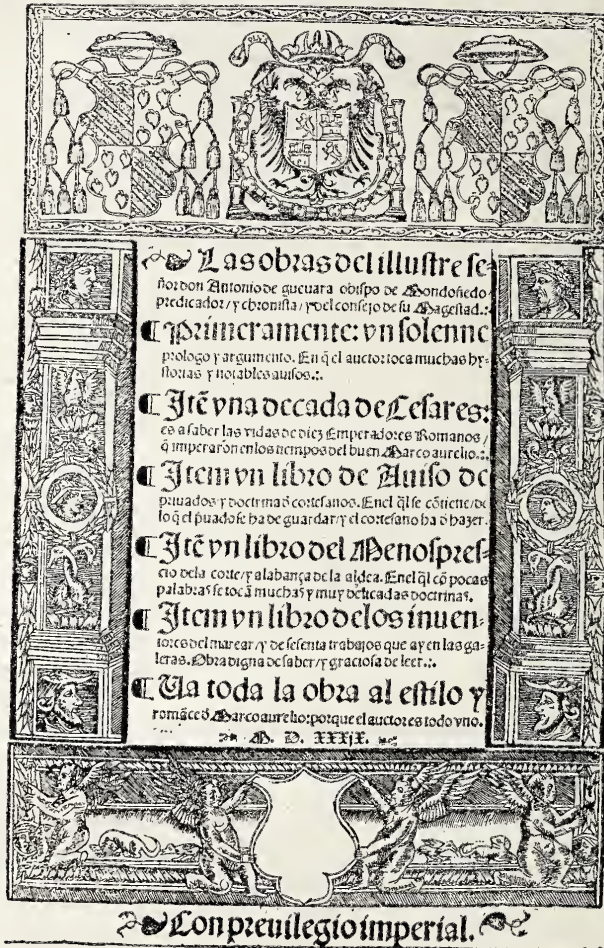 Las obras del illustre se-
ñor don Antonio de gueuara obispo de Mondoñedo
predicador/ y chronista/ y del consejo de su Magestad.:.
¶ Primeramente: vn solenne
prologo y argumento. En q̃ el auctor toca muchas hy-
storias y notables auisos.:.
¶ Itẽ vna decada de Cesares:
es a saber las vidas de diez Emperadores Romanos/
q̃ imperarõn en los tiempos del buen Marco aurelio.:.
¶ Item vn libro de Auiso de
priuados y doctrina õ cortesanos. Enel q̃l se cõtiene/ de
lo q̃ el p̃uado se ha de guardar/ y el cortesano ha õ hazer.
¶ Itẽ vn libro del Menospres-
cio dela corte/ y alabança de la aldea. Enel q̃l cõ pocas
palabras se tocã muchas y muy delicadas doctrinas.
¶ Item vn libro delos inuen-
tores del marear/ y de sesenta trabajos que ay en las ga-
leras. Obra digna de saber/ y graciosa de leer.:.
¶ Ua toda la obra al estilo y
romãce õ Marco aurelio: porque el auctor es todo vno.
M. D. XXXIX.
Con preuilegio imperial.